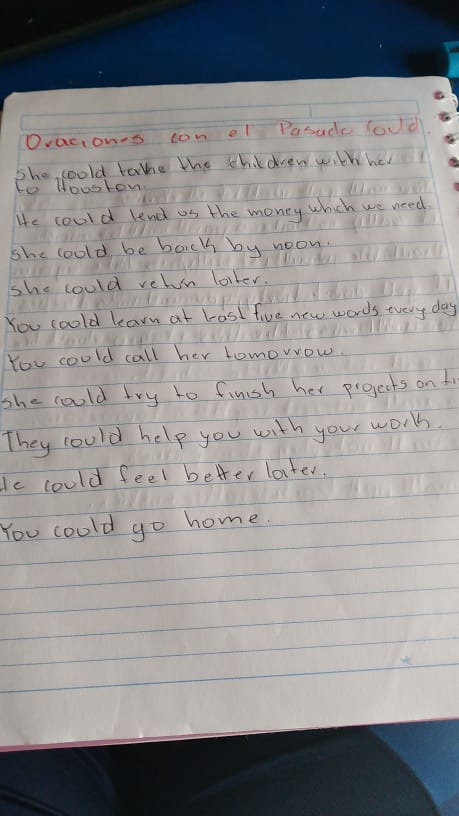 Oraciones con el Pasado Could.
She could take the children with her
to Houston.
He could lend us the money which we need.
She could be back by noon.
She could return later.
You could learn at least five new words every day
You could call her tomorrow.
She could try to finish her projects on
They could help you with your work.
He could feel better later.
You could go home.